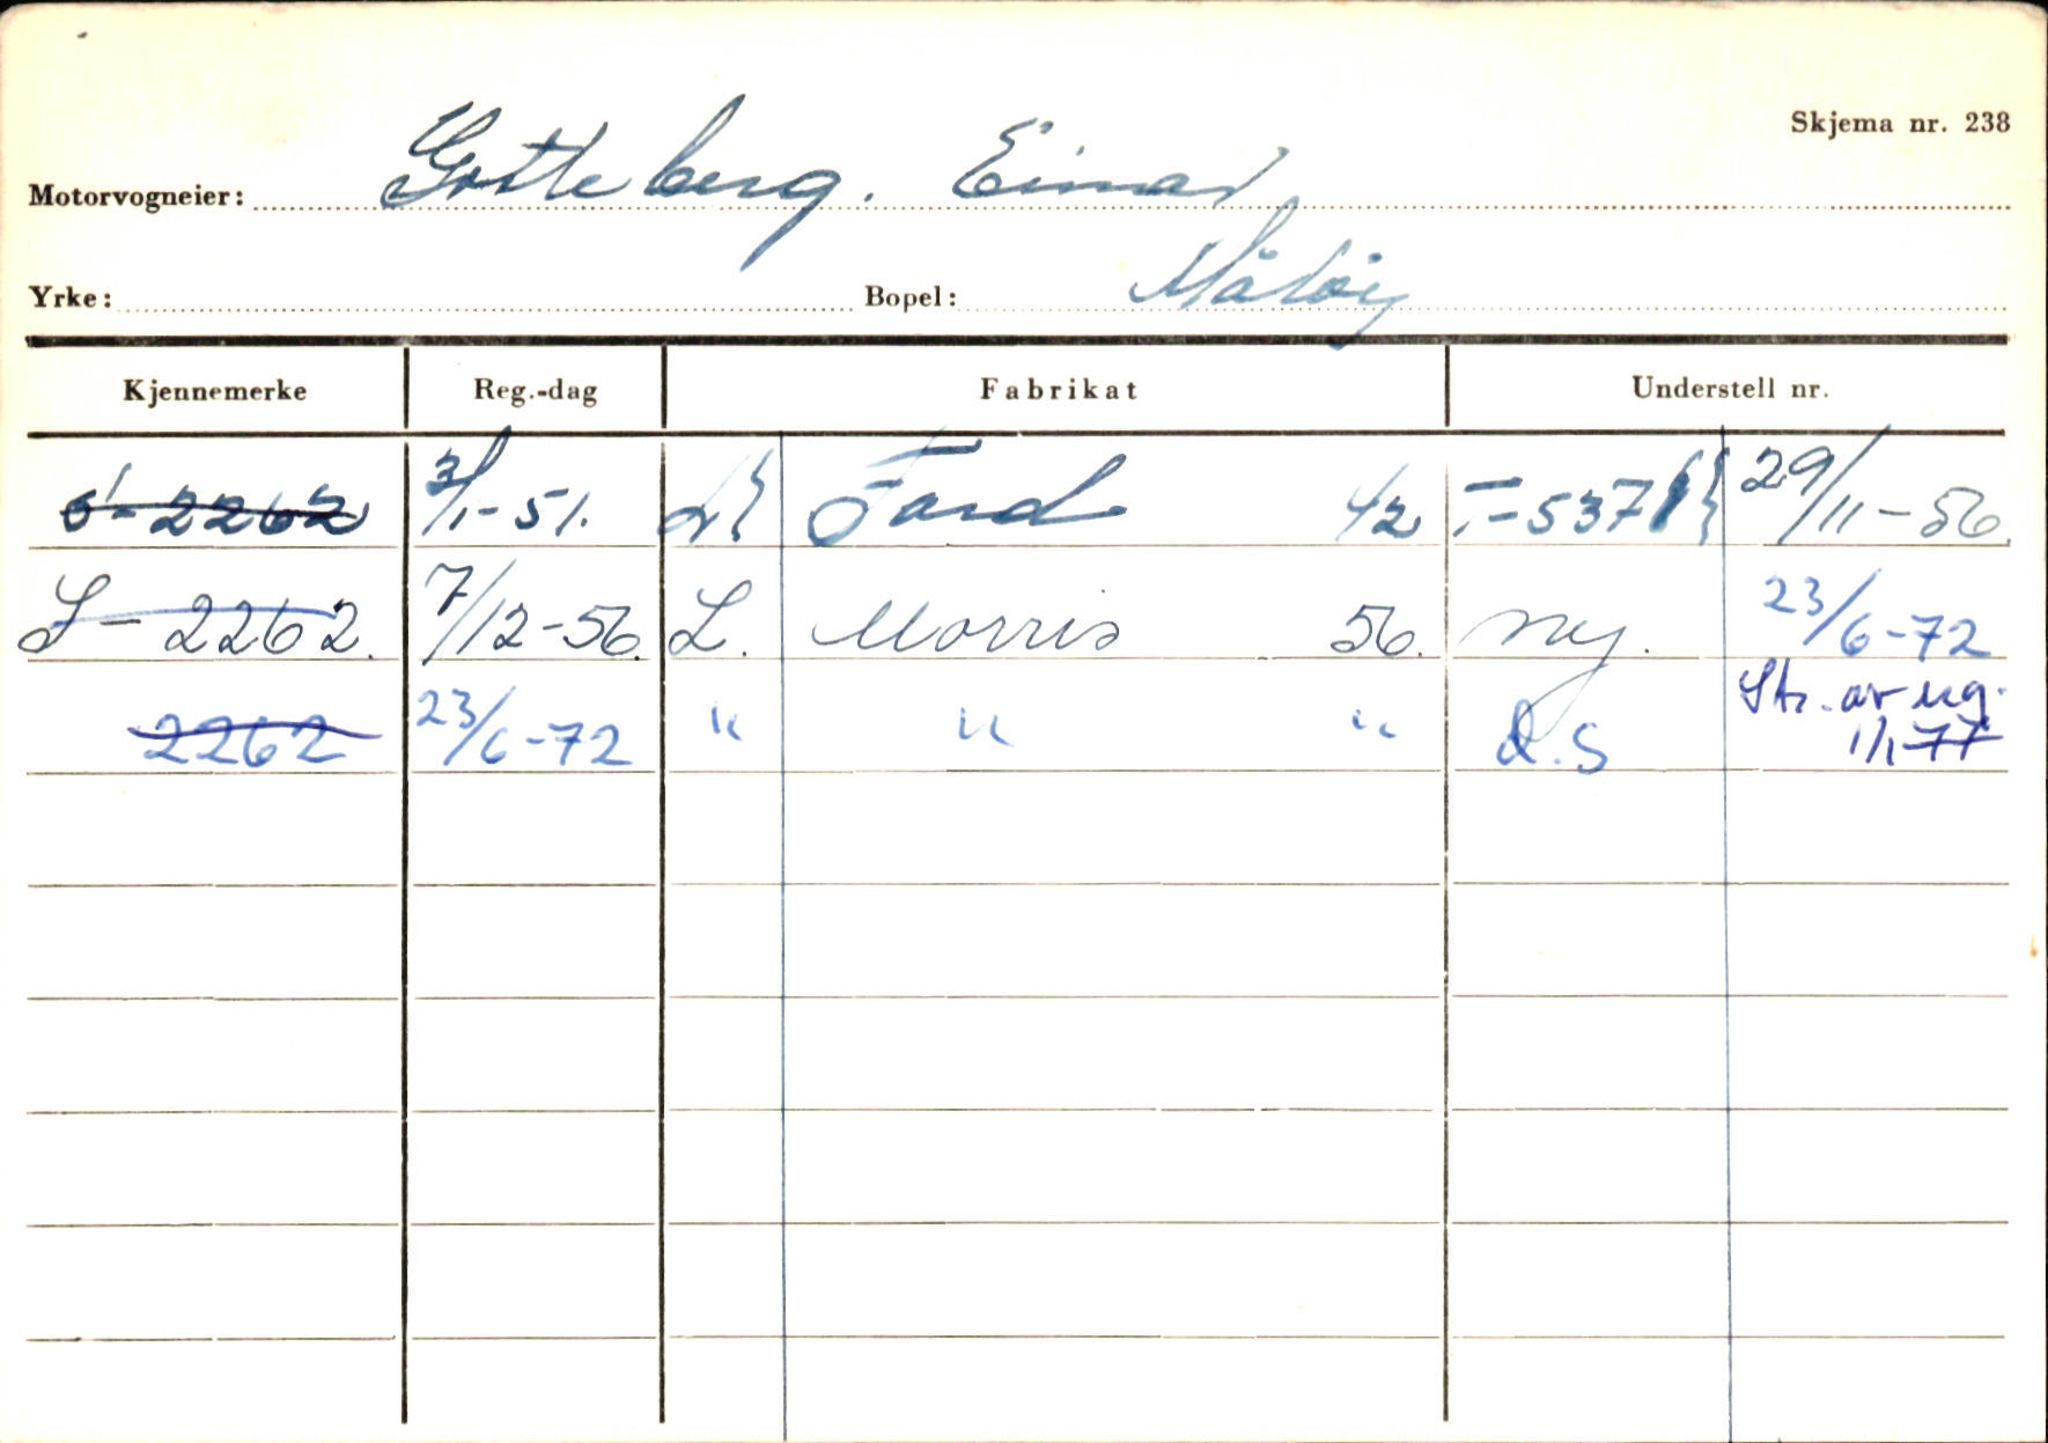 Skjema nr. 238
Motorvogneier: Gotteberg. Einar
Yrke: Bopel: Måløy
Kjennemerke Reg.-dag Fabrikat Understell nr.
S-2262 3/1-51. Ford 42 T-5371 29/11-56.
S-2262. 7/12-56. L. Morris 56. ny. 23/6-72
2262 23/6-72 " " " Q.S Str. av reg. 1/1-77